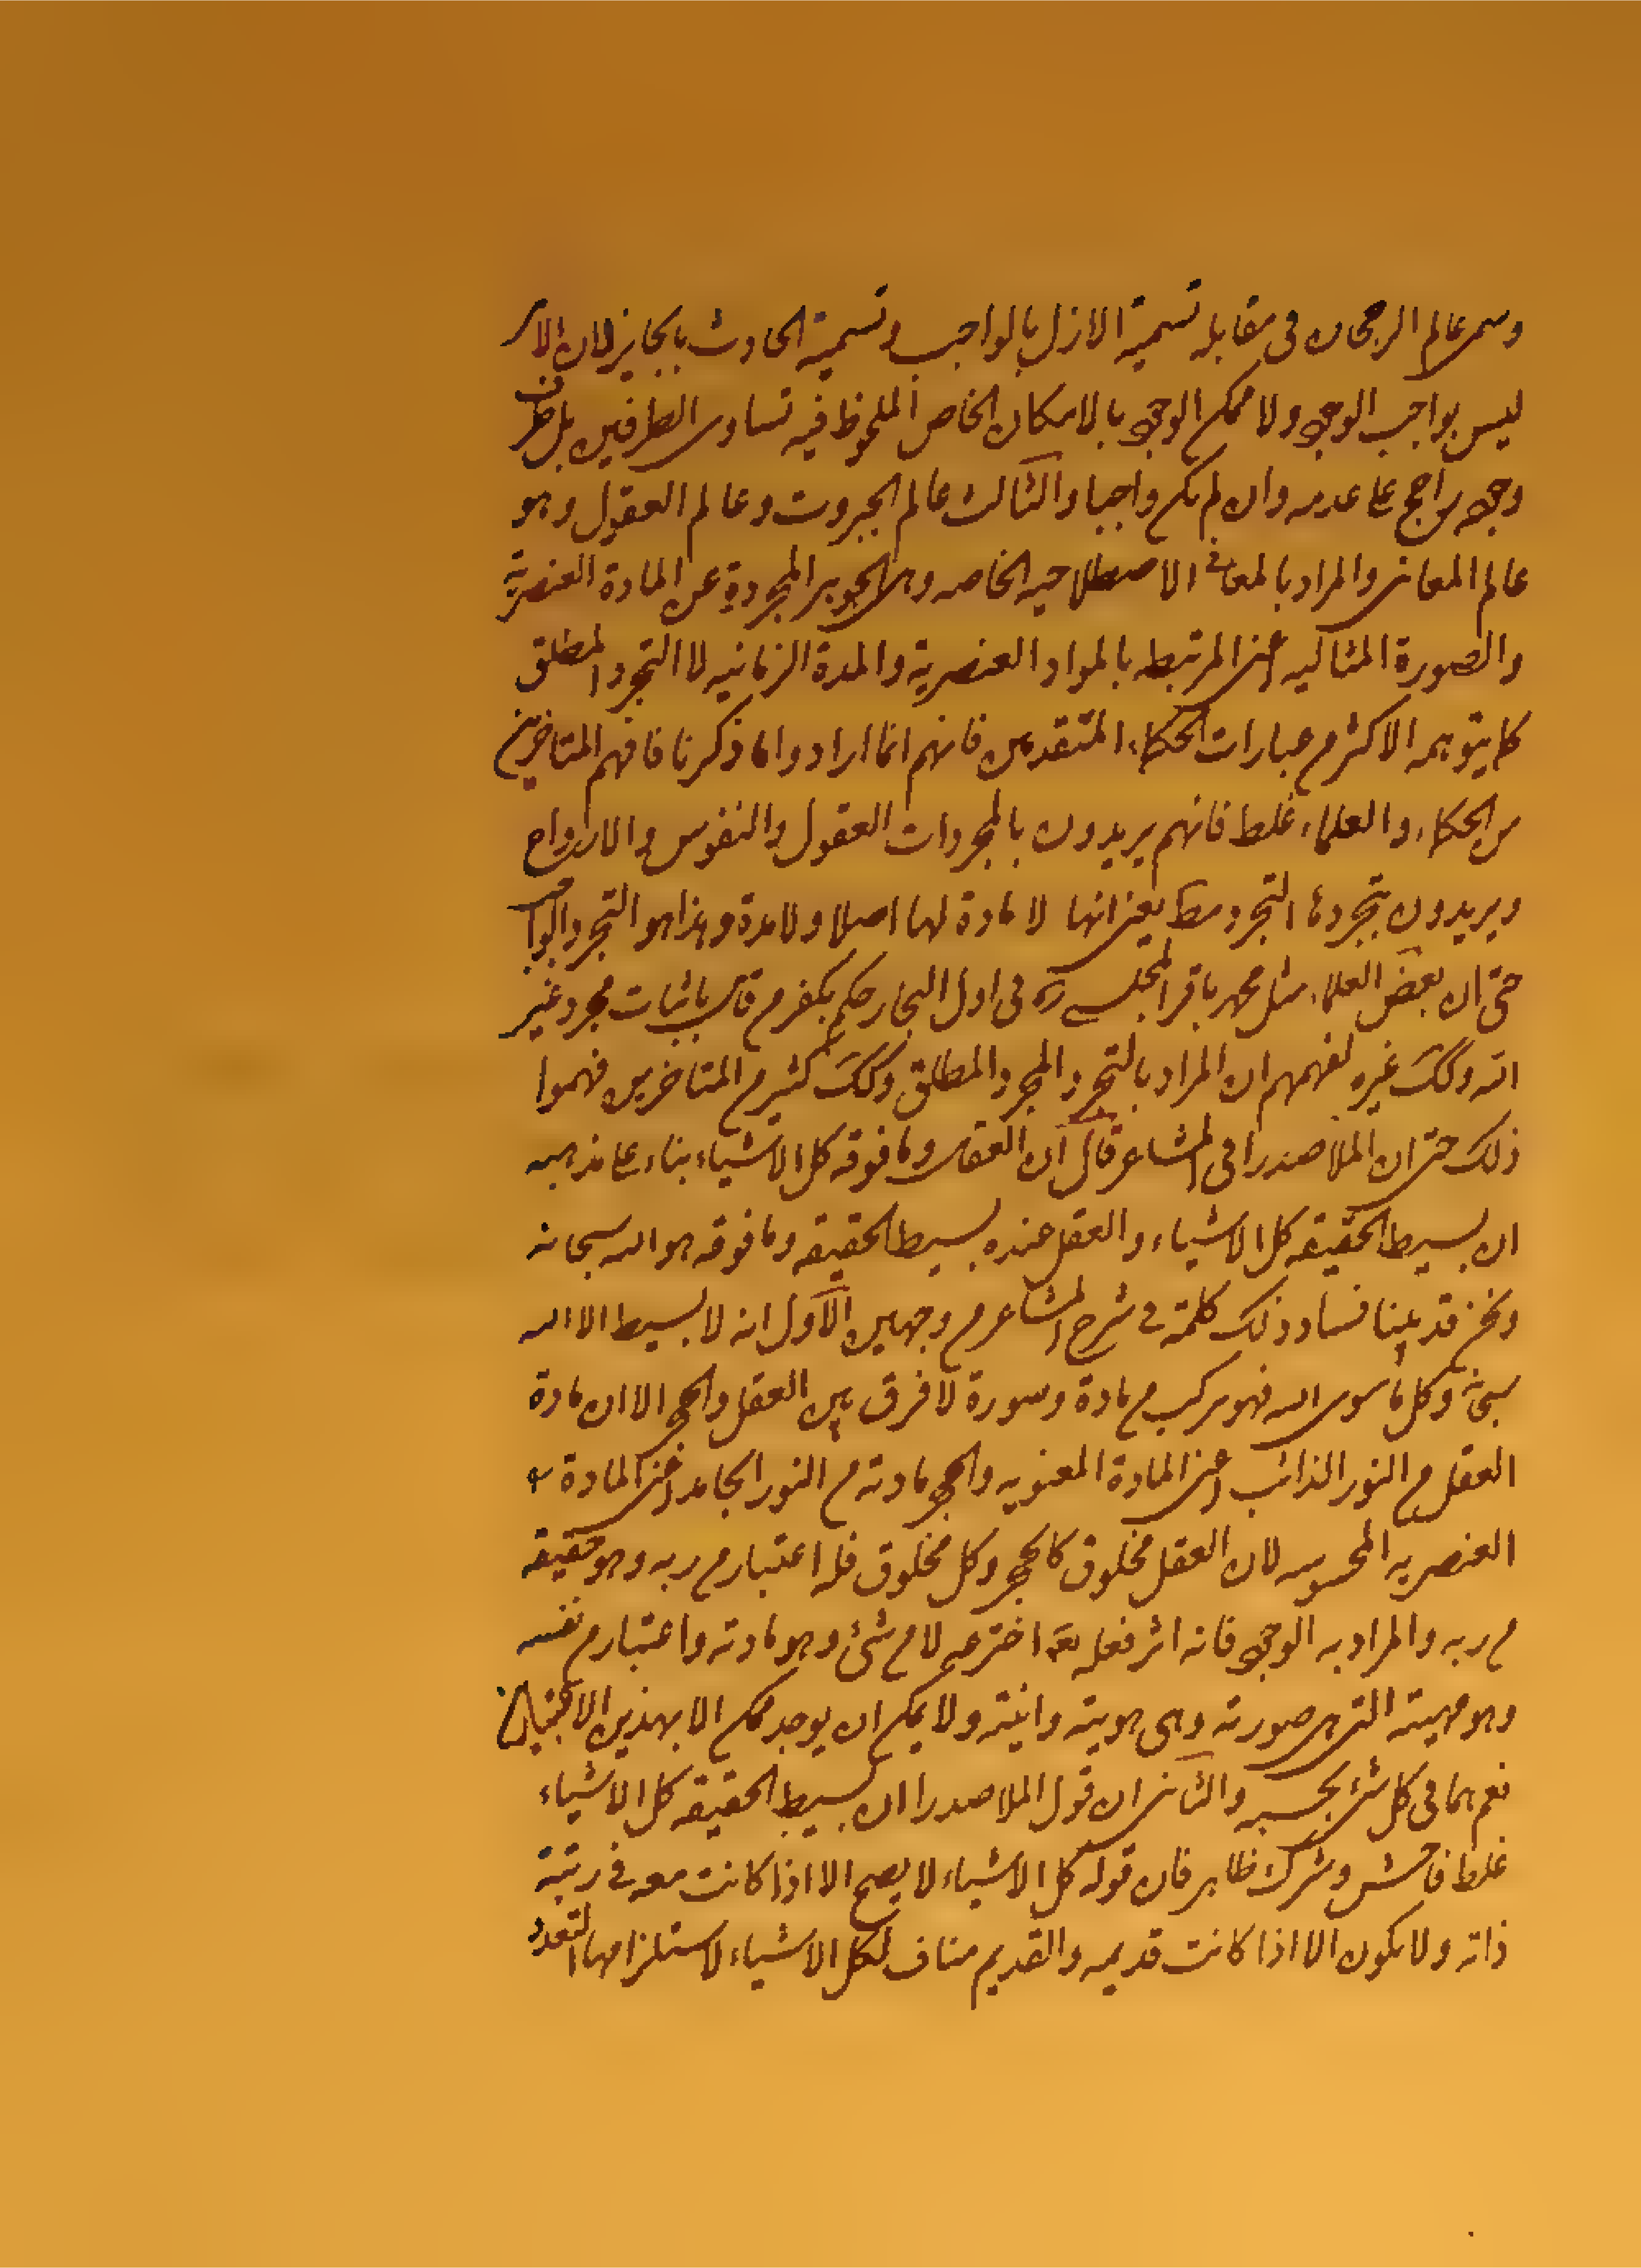 وسمى عالم الرجحان فى مقابله تسمية الازل بالواجب وتسمية الحادث بالجايز لان الامر
ليس بواجب الوجود ولا ممكن الوجود بالامكان الخاص الملحوظ فيه تساوى الطرفين بل طرف
وجوده راجح على عدمه وان لم يكن واجبا والثالث عالم الجبروت وعالم العقول وهو
عالم المعانى والمراد بالمعانى الاصطلاحيه الخاصه وهى الجوهر المجردة عن المادة العنصرية
والصورة المثاليه اعنى المرتبطه بالمواد العنصرية والمدة الزمانيه لا التجرد المطلق
كما يتوهمه الاكثر من عبارات الحكماء المتقدمين فانهم انما ارادوا ما ذكرنا فافهم المتاخرين
من الحكماء والعلماء غلط فانهم يريدون بالمجردات العقول والنفوس والارواح
ويريدون بتجردها التجرد مط يعنى انها لا مادة لها اصلا ولا مدة وهذا هو التجرد الواجب
حتى ان بعض العلماء مثل محمد باقر المجلسى ره فى اول البحار حكم بكفر من قال باثبات مجرد غير
الله وكذلك غيره لفهمهم ان المراد بالتجرد المجرد المطلق وكذلك كثير من المتاخرين فهموا
ذلك حتى ان الملا صدرا فى المشاعر قال ان العقل وما فوقه كل الاشياء بناء على مذهبه
ان بسيط الحقيقه كل الاشياء والعقل عنده بسيط الحقيقه وما فوقه هو الله سبحانه
ونحن قد بينا فساد ذلك كلمة فى شرح المشاعر من وجهين الاول انه لا بسيط الا الله
سبحانه وكل ما سوى الله فهو مركب من مادة وصورة لا فرق بين العقل والحجر الا ان مادة
العقل من النور الذائب اعنى المادة المعنويه والحجر مادته من النور الجامد اعنى المادة
العنصريه المحسوسه لان العقل مخلوق كالحجر وكل مخلوق فله اعتبار من ربه وهو حقيقته
من ربه والمراد به الوجود فانه اثر فعله تعه اخترعه لا من شئ وهو مادته واعتبار من نفسه
وهو مهيته التى هى صورته وهى هويته وانيته ولا يمكن ان يوجد ممكن الا بهذين الاعتبارين
نعم هما فى كل شئ بحسبه والثانى ان قول الملا صدرا ان بسيط الحقيقه كل الاشياء
غلط فاحش وشرك ظاهر فان قوله كل الاشياء لا يصح الا اذا كانت معه فى رتبة
ذاته ولا يكون الا اذا كانت قديمه والقديم مناف لكل الاشياء لاستلزامها التعدد